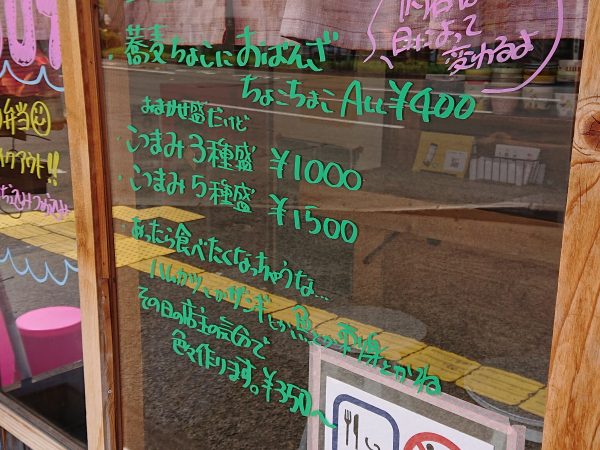 内容は
日によって
変わるよ
蕎麦ちょこにおばんざい
ちょこちょこ ALL ¥400
おまかせ盛だけど
・つまみ3種盛 ¥1000
・つまみ5種盛 ¥1500
あったら食べたくなっちゃうな…
ハムカツとかザンギとか魚とか
その日の店主の気分で
色々作ります。¥350〜
弁当
テイクアウト!!